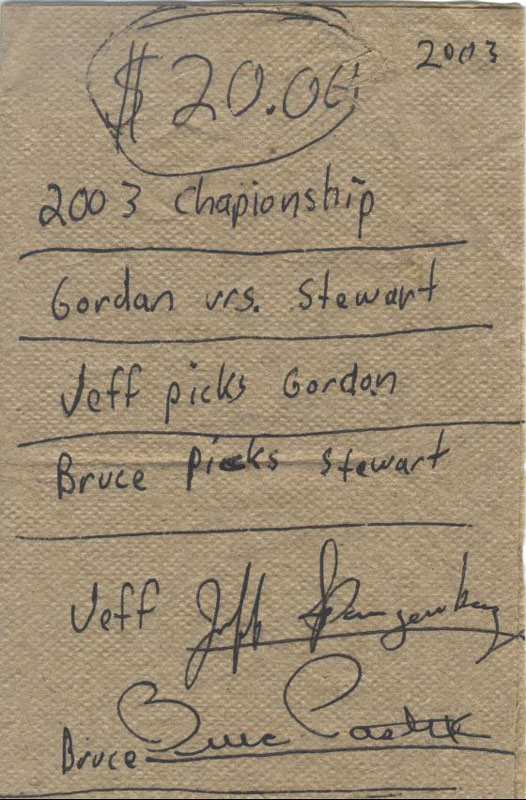 2003
$20.00
2003 Chapionship
Gordan vrs. Stewart
Jeff picks Gordon
Bruce picks Stewart
Jeff
Bruce Bruce